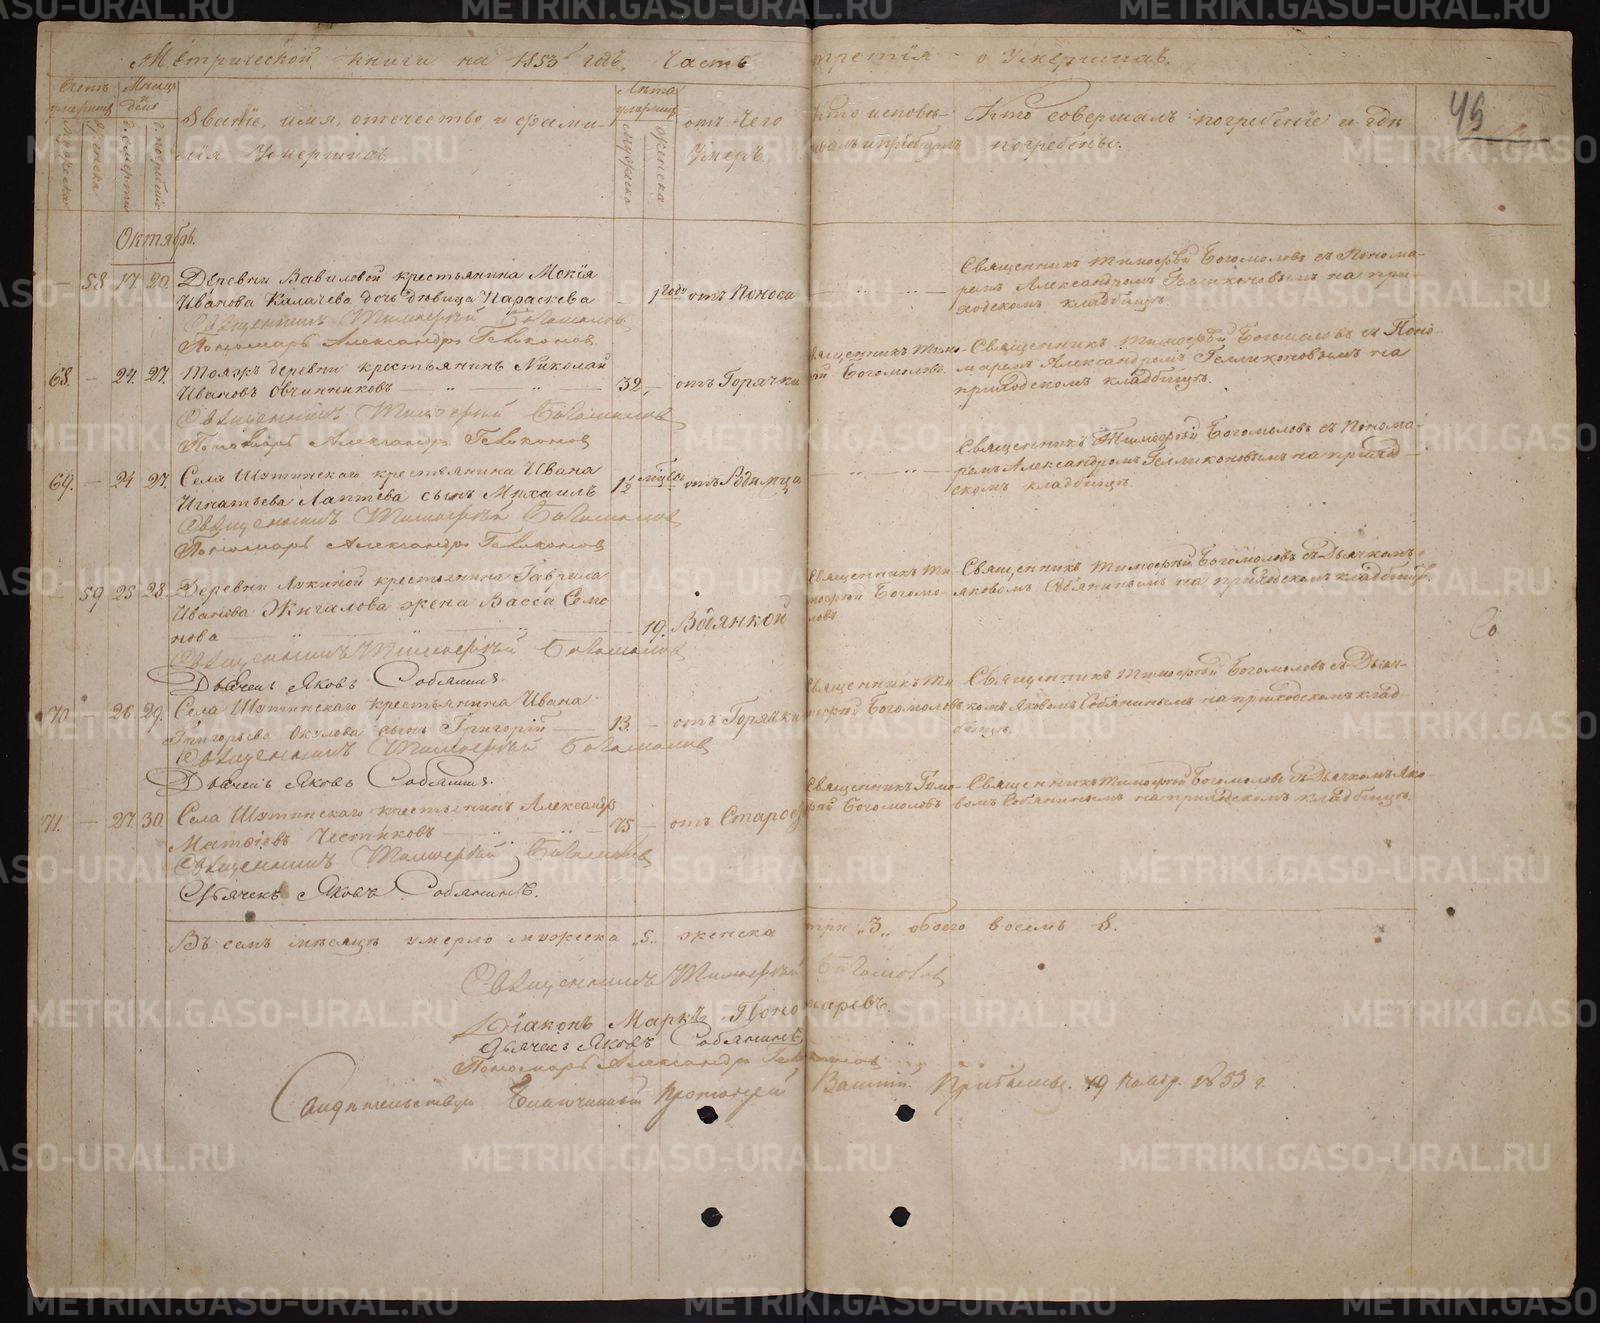 Метрической книги на 1853 годъ. Часть третія о Умершихъ.
Счетъ умершихъ
Мужеска
Женска
Мѣсяцъ и день
смерти
погребенія
Званіе, имя, отечество и фами-
лія Умершихъ.
Лѣта умершихъ
Мужеска
Женска
отъ Чего Умеръ.
Кто исповѣ-
Кто совершалъ погребеніе и гдѣ
погребены.
45
Октябрь.
— 58 17. 20. Деревни Вавиловой крестьянина Мокія
Иванова Калачева дочь дѣвица Параскева — 1 годъ отъ Поноса
Священникъ Тимоѳей Богомоловъ съ Понома-
ремъ Александромъ Геликоновымъ на при-
ходскомъ кладбищѣ.
Священникъ Тимоѳей Богомоловъ
Пономарь Александръ Геликоновъ
68. — 24. 27. Тояжъ деревни крестьянинъ Николай
Ивановъ Овчинниковъ 32 — отъ Горячки
Священникъ Тимо-
ѳей Богомоловъ.
Священникъ Тимоѳей Богомоловъ съ Поно-
маремъ Александромъ Геликоновымъ на
приходскомъ кладбищѣ.
Священникъ Тимоѳей Богомоловъ
Пономарь Александръ Геликоновъ
69. — 24 27. Села Шутинскаго крестьянина Ивана
Игнатьева Лаптева сынъ Михаилъ 1/2 отъ Родимца
Священникъ Тимоѳей Богомоловъ съ Понома-
ремъ Александромъ Геликоновымъ на приход-
скомъ кладбищѣ.
Священникъ Тимоѳей Богомоловъ
Пономарь Александръ Геликоновъ
— 59 25 28. Деревни Лукиной крестьянина Гаврила
Иванова Жигалова жена Васса Семе
нова — 19. Водянкой
Священникъ Ти-
моѳей Богомо-
ловъ
Священникъ Тимоѳей Богомоловъ съ Дьячкомъ
Яковомъ Собянинымъ на приходскомъ кладбищѣ.
Священникъ Тимоѳей Богомоловъ
Дьячекъ Яковъ Собянинъ.
70 — 26 29. Села Шутинскаго крестьянина Ивана
Григорьева Окулова сынъ Григорій 13. — отъ Горячки
Священникъ Ти-
моѳей Богомоловъ
Священникъ Тимоѳей Богомоловъ съ Дьяч-
комъ Яковомъ Собянинымъ на приходскомъ клад-
бищѣ.
Священникъ Тимоѳей Богомоловъ
Дьячекъ Яковъ Собянинъ.
71. — 27. 30. Села Шутинскаго крестьянинъ Александръ
Матѳіевъ Честиковъ 75 — отъ Старос
Священникъ Тимо-
ѳей Богомоловъ
Священникъ Тимоѳей Богомоловъ съ Дьячкомъ Яко-
вомъ Собянинымъ на приходскомъ кладбищѣ.
Священникъ Тимоѳей Богомоловъ
Дьячекъ Яковъ Собянинъ.
Въ семъ мѣсяцѣ умерло мужеска „5„ женска три „3„ обоего восемь 8.
Священникъ Тимоѳей Богомоловъ
Діаконъ Маркъ Пономаревъ.
Дьячекъ Яковъ Собянинъ
Пономарь Александръ Геликоновъ
Свидѣтельствую Благочинный Протоіерей 1853 г.
METRIKI.GASO-URAL.RU